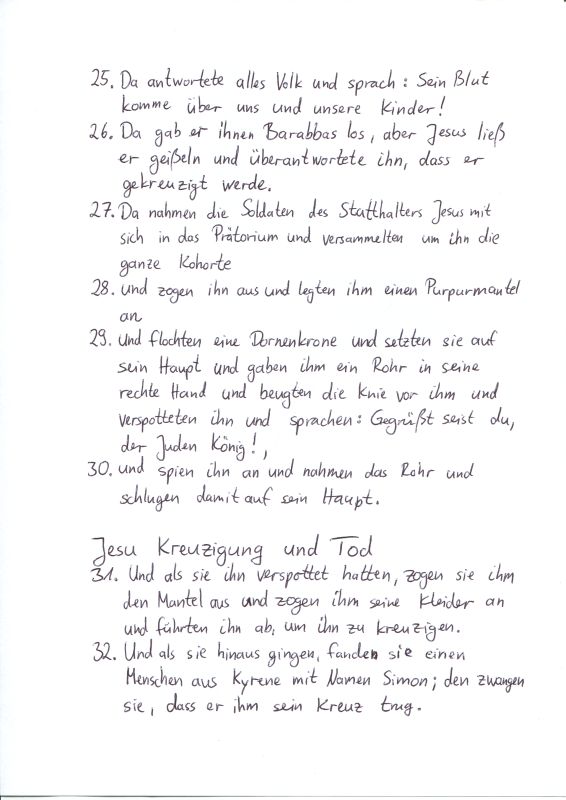 25. Da antwortete alles Volk und sprach: Sein Blut
komme über uns und unsere Kinder!
26. Da gab er ihnen Barabbas los, aber Jesus ließ
er geißeln und überantwortete ihn, dass er
gekreuzigt werde.
27. Da nahmen die Soldaten des Statthalters Jesus mit
sich in das Prätorium und versammelten um ihn die
ganze Kohorte
28. und zogen ihn aus und legten ihm einen Purpurmantel
an
29. und flochten eine Dornenkrone und setzten sie auf
sein Haupt und gaben ihm ein Rohr in seine
rechte Hand und beugten die Knie vor ihm und
verspotteten ihn und sprachen: Gegrüßt seist du,
der Juden König!,
30. und spien ihn an und nahmen das Rohr und
schlugen damit auf sein Haupt.
Jesu Kreuzigung und Tod
31. Und als sie ihn verspottet hatten, zogen sie ihm
den Mantel aus und zogen ihm seine Kleider an
und führten ihn ab, um ihn zu kreuzigen.
32. Und als sie hinaus gingen, fanden sie einen
Menschen aus Kyrene mit Namen Simon; den zwangen
sie, dass er ihm sein Kreuz trug.